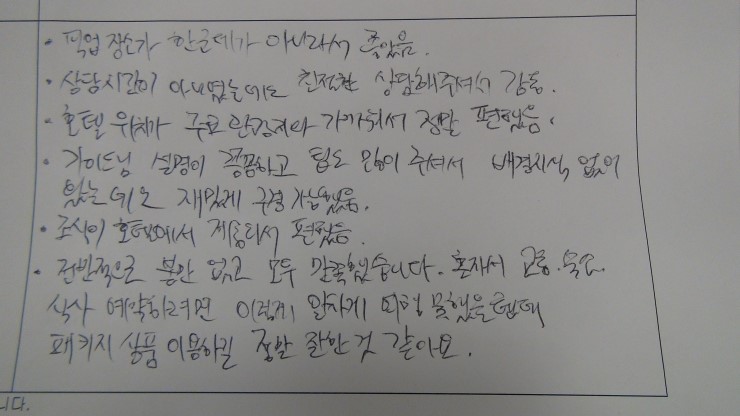 • 픽업 장소가 한군데가 아니라서 좋았음.
• 상담시간이 아니었는데도 친절한 상담해주셔서 감동.
• 호텔 위치가 주요 관광지와 가까워서 정말 편했음.
• 가이드님 설명이 꼼꼼하고 팁도 많이 주셔서 배경지식 없이
왔는데도 재밌게 구경 가능했음.
• 조식이 호텔에서 제공되서 편했음.
• 전반적으로 불만 없고 모두 만족했습니다. 혼자서 교통.숙소.
식사 예약하려면 이렇게 알차게 여행 못했을텐데
패키지 상품 이용하길 정말 잘한 것 같아요.
니다.